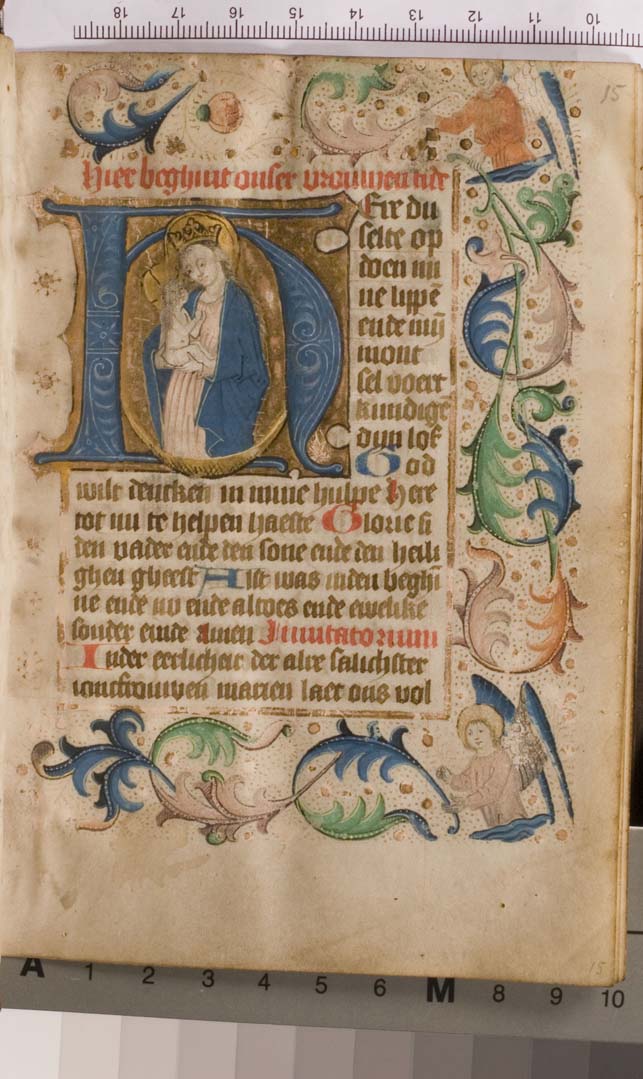 15
Hier beghint onser vrouwen tide
HEre du
selte op
doen mi
ne lippē
ende mȳ
mont
sel voert
kundigē
dijn lof
God
wilt dencken in mine hulpe Here
tot mi te helpen haeste Glorie si
den vader ende den sone ende den heili
ghen gheest Alst was inden beghī
ne ende nv ende altoes ende ewelike
sonder einde Amen Inuitatorium
Inder eerlicheit der alre salichster
ioncfrouwen marien laet ons vol
15
18 17 16 15 14 13 12 11 10
A 1 2 3 4 5 6 M 8 9 10